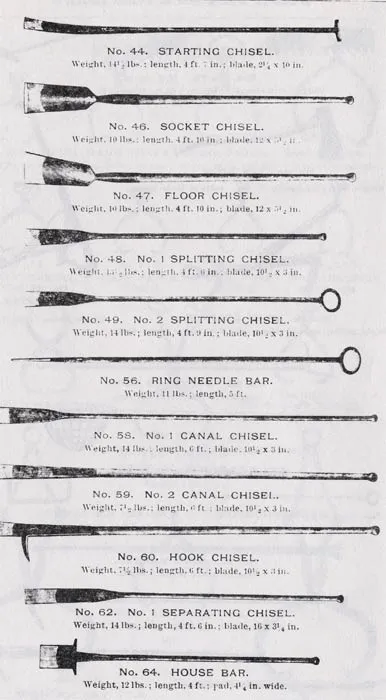 No. 44. STARTING CHISEL.
Weight, 14½ lbs.; length, 4 ft. 7 in.; blade, 2¼ x 10 in.
No. 46. SOCKET CHISEL.
Weight, 10 lbs.; length, 4 ft. 10 in.; blade, 12 x 5½ in.
No. 47. FLOOR CHISEL.
Weight, 10 lbs.; length, 4 ft. 10 in.; blade, 12 x 5½ in.
No. 48. No. 1 SPLITTING CHISEL.
Weight, 13½ lbs.; length, 4 ft. 6 in.; blade, 10½ x 3 in.
No. 49. No. 2 SPLITTING CHISEL.
Weight, 14 lbs.; length, 4 ft. 9 in.; blade, 10½ x 3 in.
No. 56. RING NEEDLE BAR.
Weight, 11 lbs.; length, 5 ft.
No. 58. No. 1 CANAL CHISEL.
Weight, 14 lbs.; length, 6 ft.; blade, 10½ x 3 in.
No. 59. No. 2 CANAL CHISEL.
Weight, 7½ lbs.; length, 6 ft.; blade, 10½ x 3 in.
No. 60. HOOK CHISEL.
Weight, 7½ lbs.; length, 6 ft.; blade, 10½ x 3 in.
No. 62. No. 1 SEPARATING CHISEL.
Weight, 14 lbs.; length, 4 ft. 6 in.; blade, 16 x 3¼ in.
No. 64. HOUSE BAR.
Weight, 12 lbs.; length, 4 ft.; pad, 4¼ in. wide.